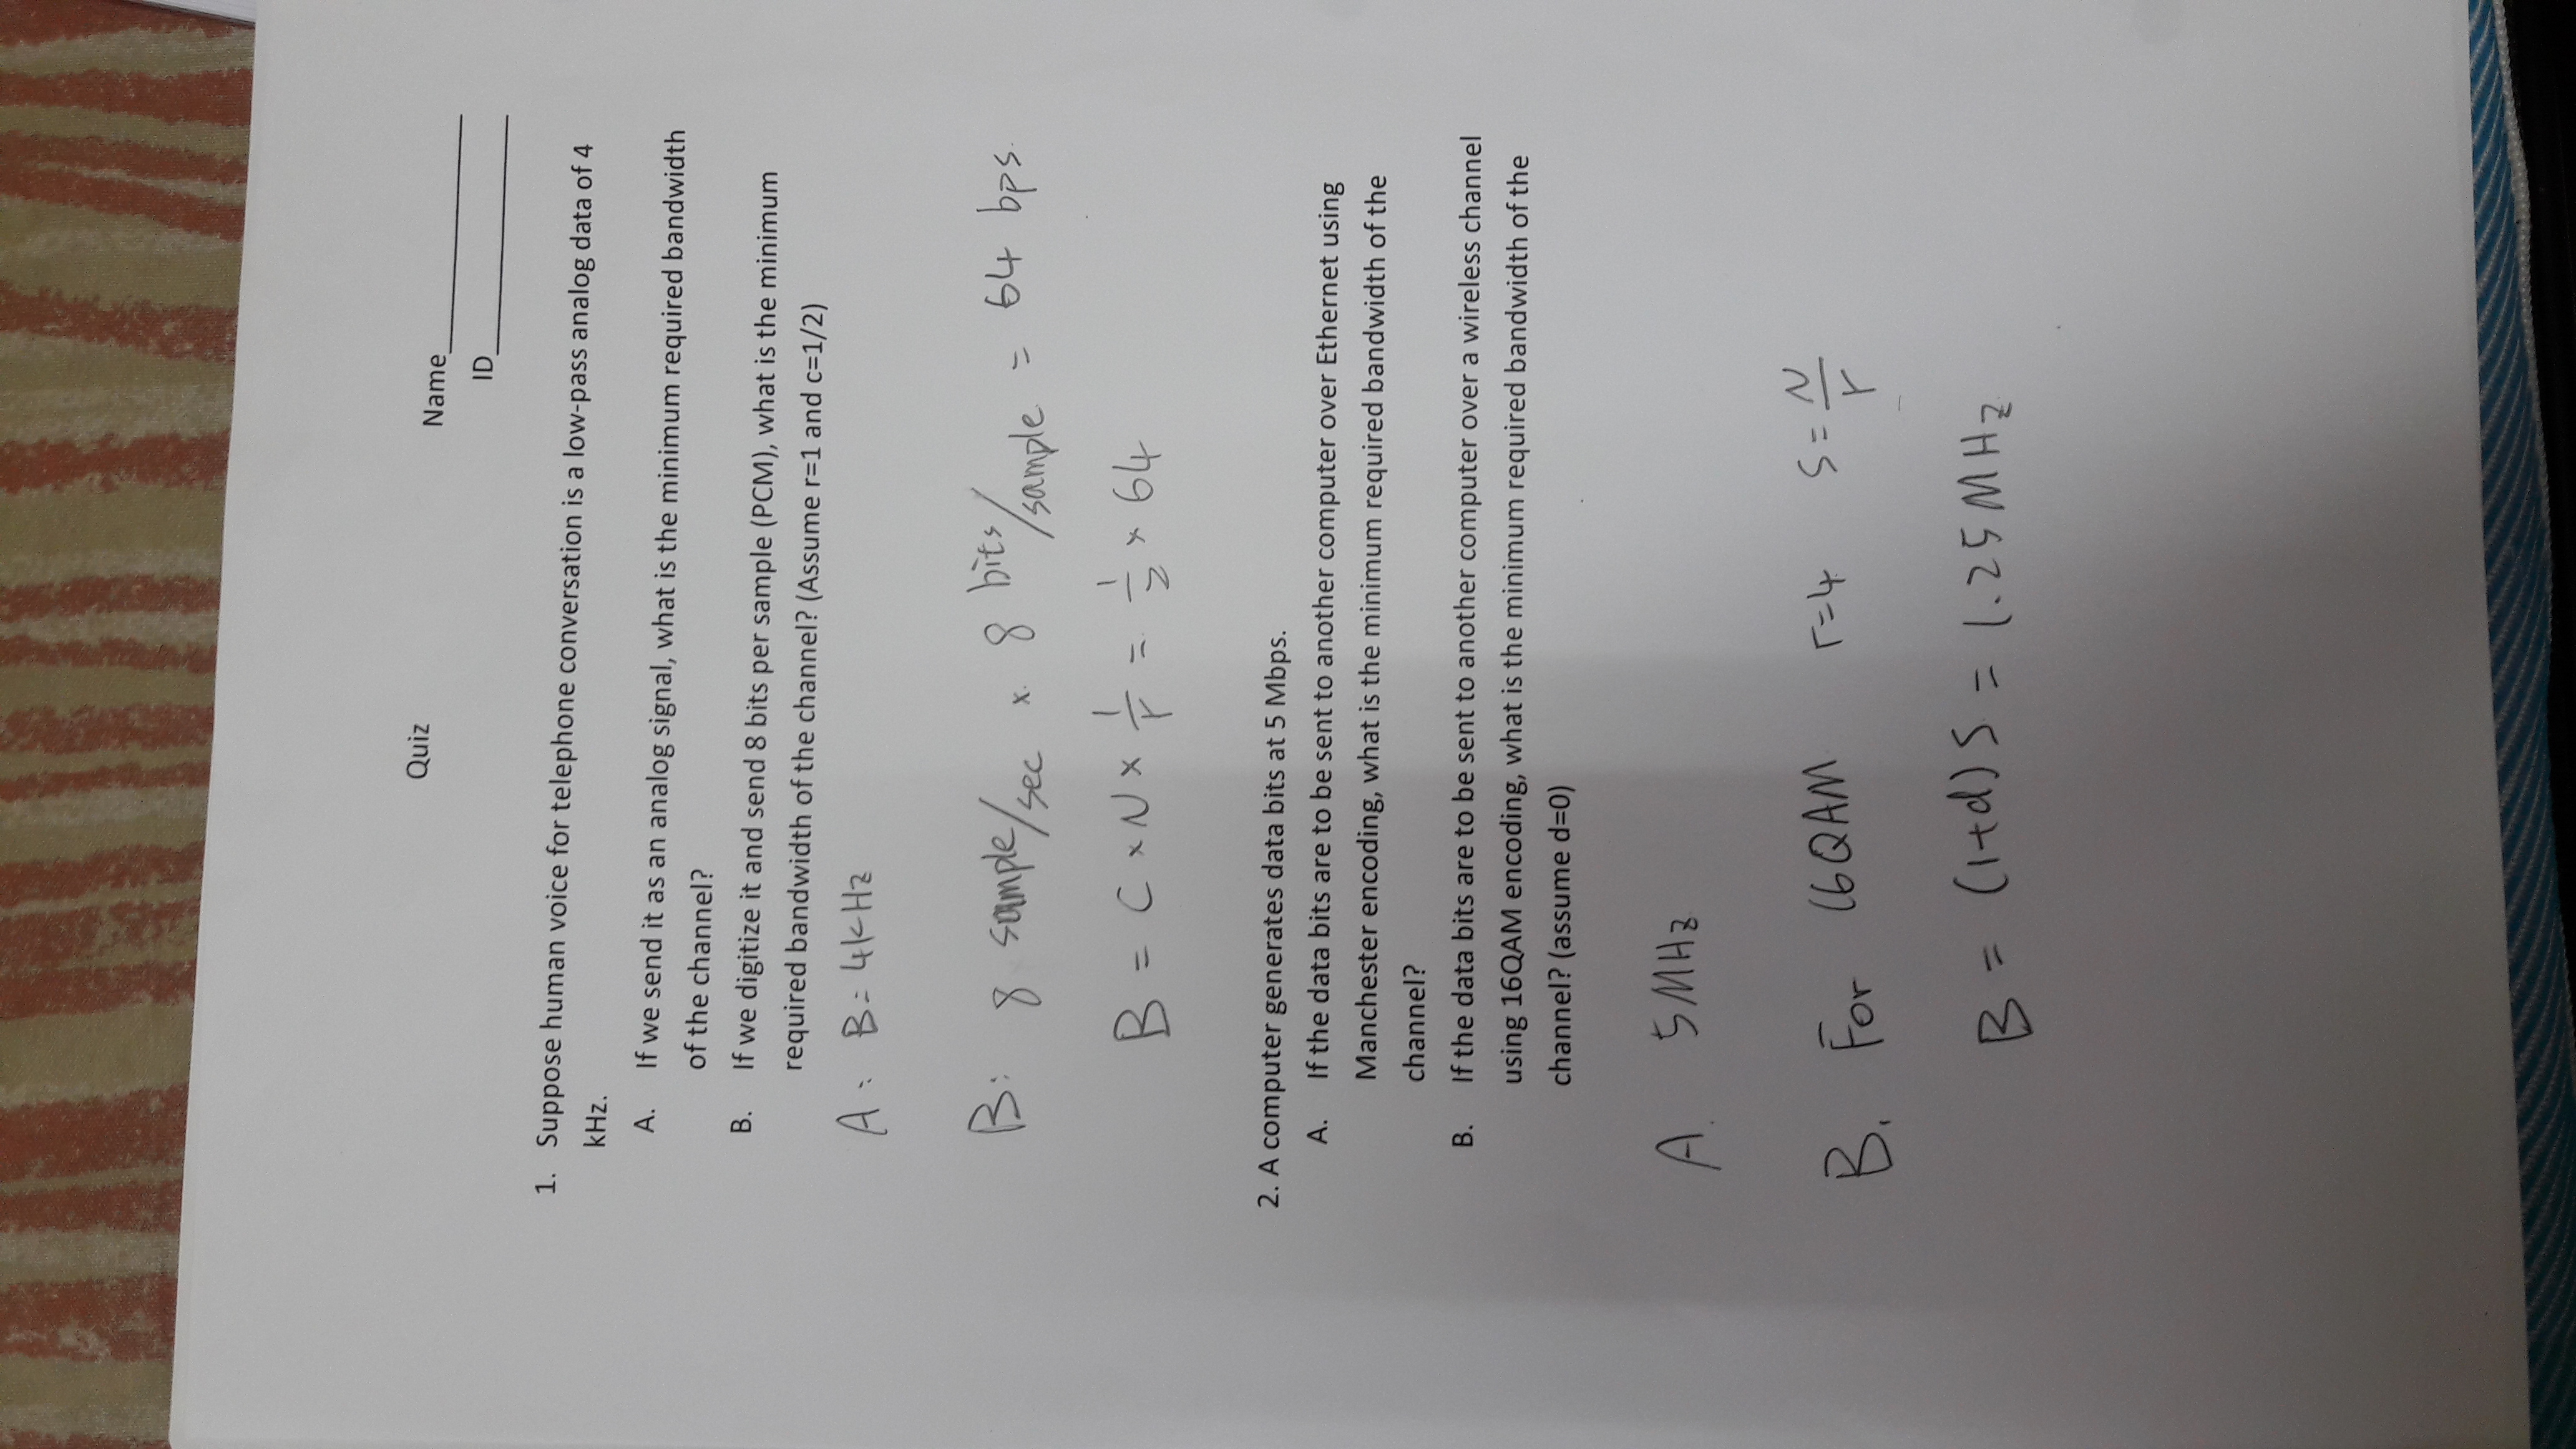 Quiz
Name
ID
1. Suppose human voice for telephone conversation is a low-pass analog data of 4
kHz.
A. If we send it as an analog signal, what is the minimum required bandwidth
of the channel?
B. If we digitize it and send 8 bits per sample (PCM), what is the minimum
required bandwidth of the channel? (Assume r=1 and c=1/2)
A: B=4kHz
B: 8 sample/sec × 8 bits/sample = 64 bps.
B = C × N × 1/r = 1/2 × 64
2. A computer generates data bits at 5 Mbps.
A. If the data bits are to be sent to another computer over Ethernet using
Manchester encoding, what is the minimum required bandwidth of the
channel?
B. If the data bits are to be sent to another computer over a wireless channel
using 16QAM encoding, what is the minimum required bandwidth of the
channel? (assume d=0)
A. 5MHz
B. For 16QAM r=4 S=N/r
B = (1+d)S = 1.25MHz